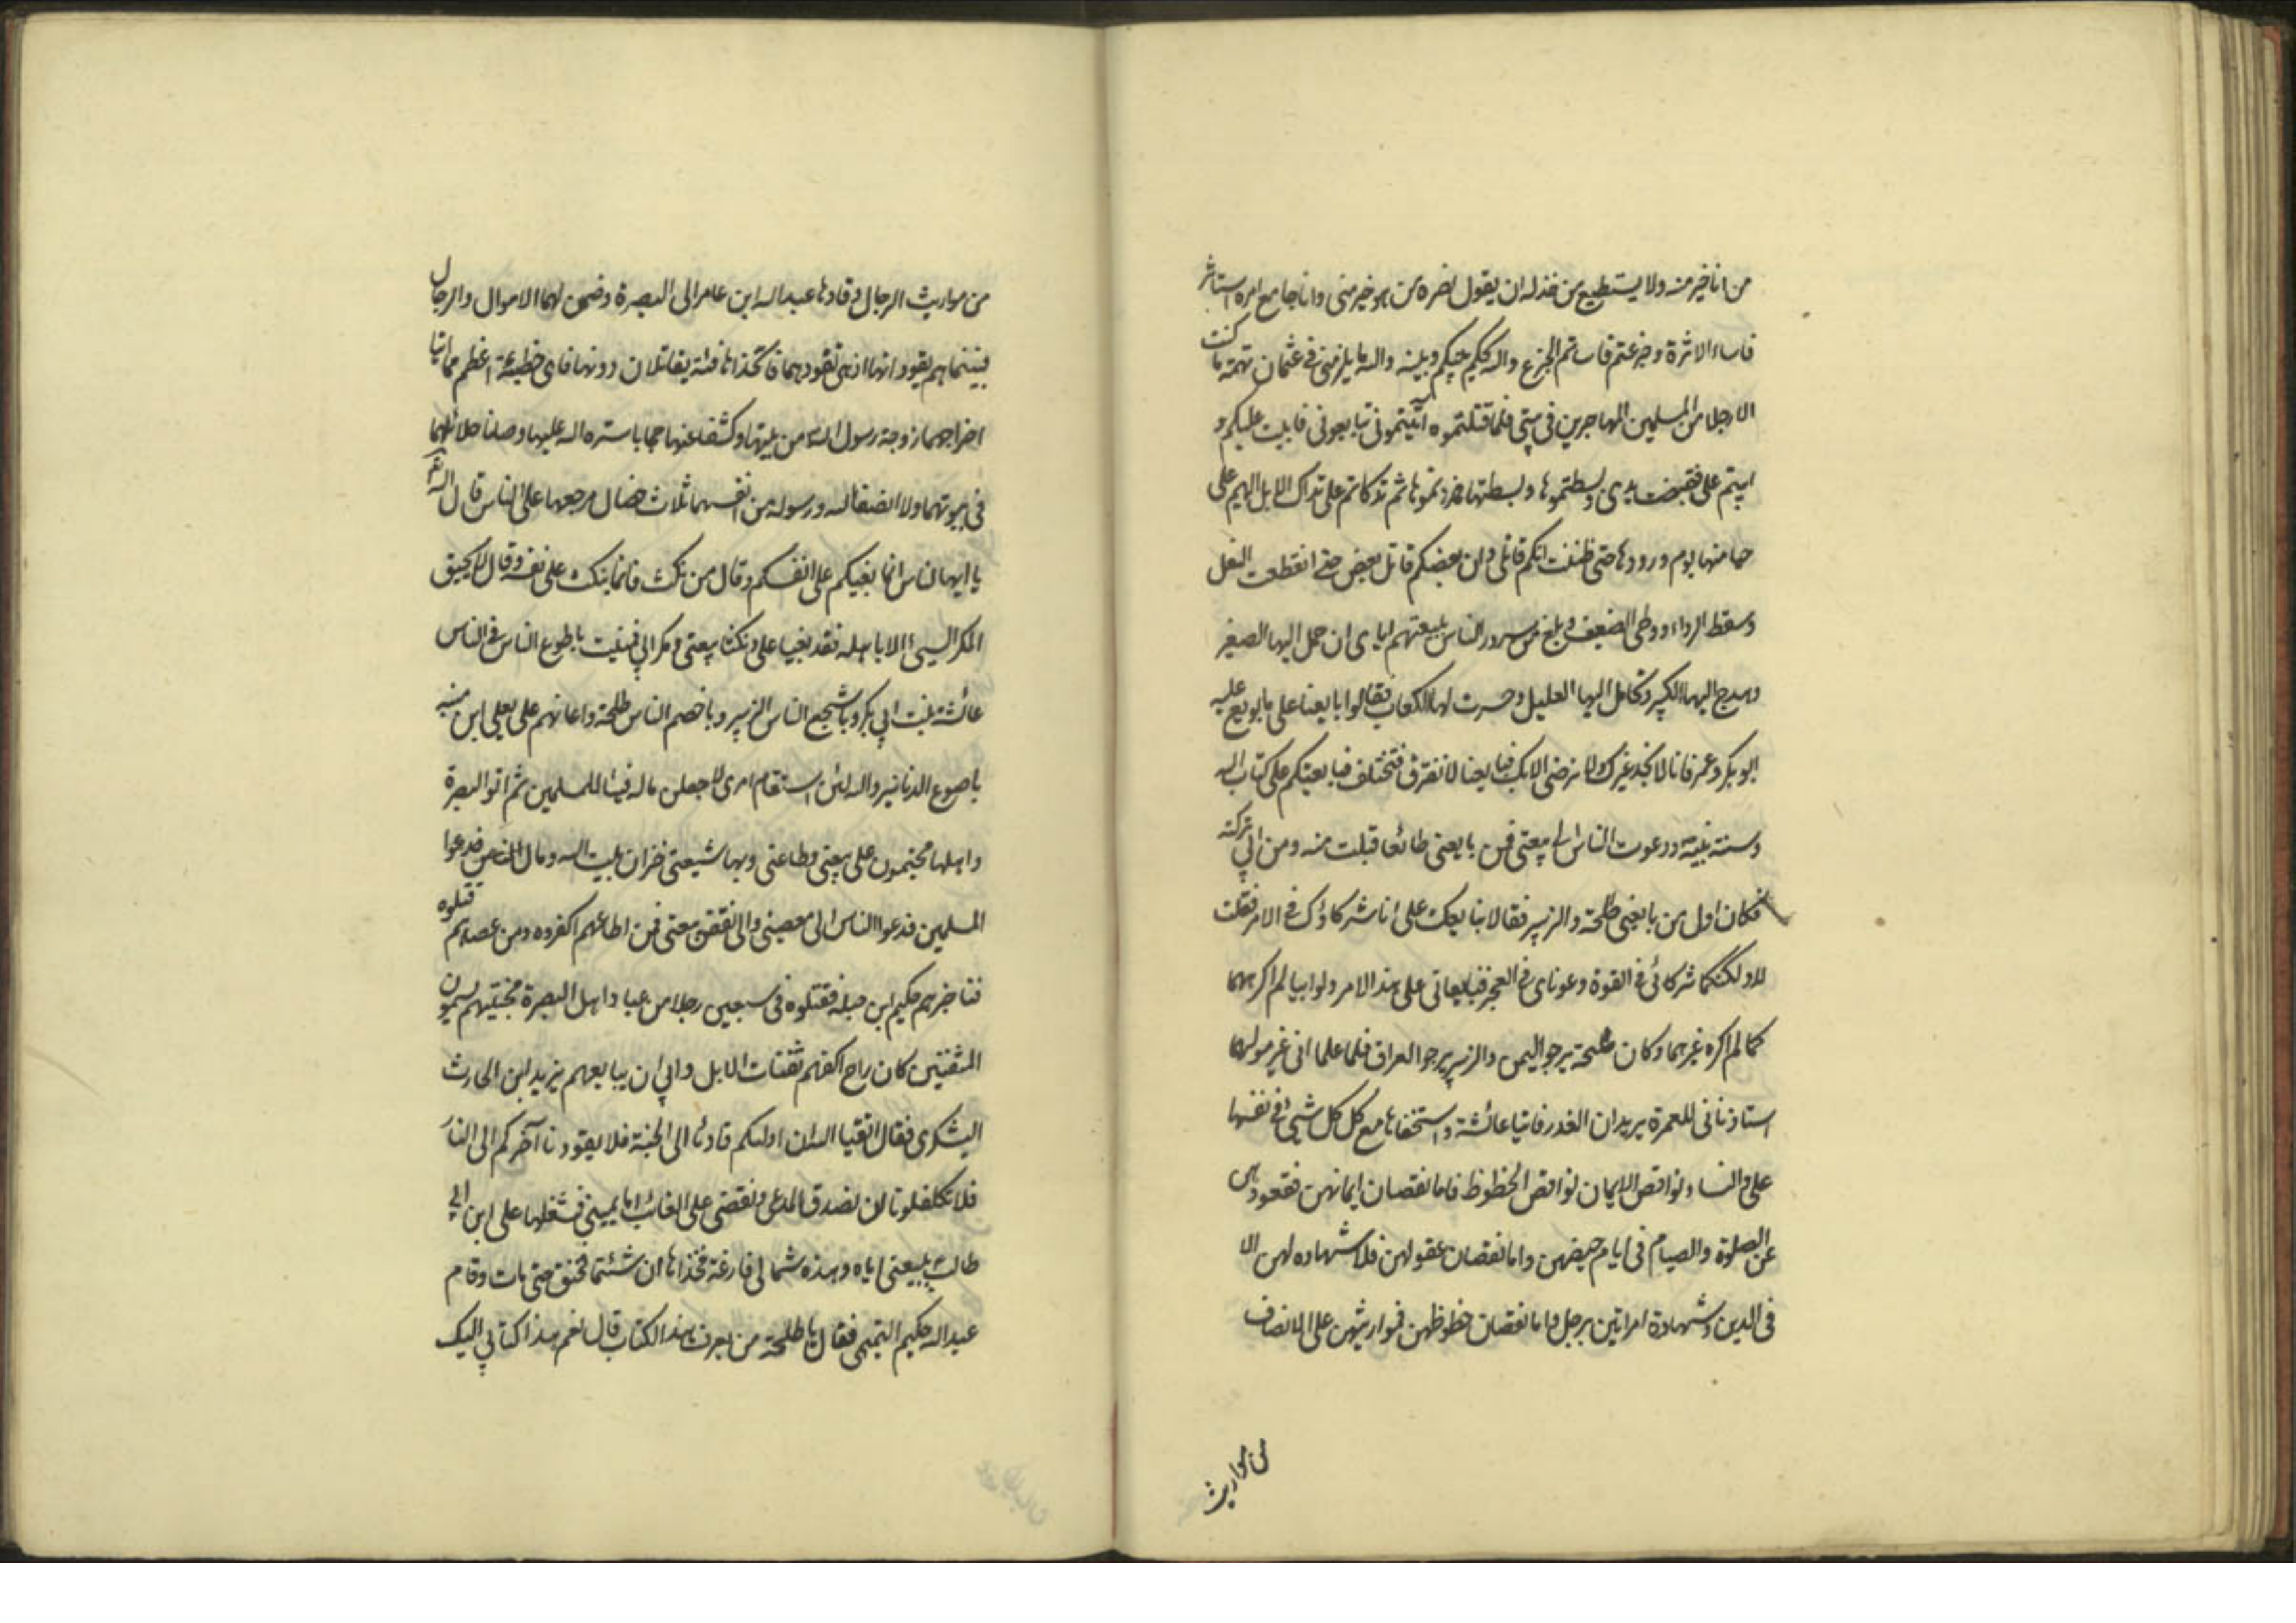 من انا خير منه ولا يستطيع من خذله ان يقول نصره من هو خير منى وانا جامع امره استاثر
فاساء الاثرة وجزعتم فاساتم الجزع والله يحكم بينكم وبينه والله ما يلزمنى فى عثمان تهمة ما كنت
الا رجلا من المسلمين المهاجرين فى بيتى فلما قتلتموه اتيتمونى تبايعونى فابيت عليكم و
ابيتم على فقبضت يدى وبسطتموها وبسطتها فمددتموها ثم تداككتم على تداك الابل الهيم على
حياضها يوم ورودها حتى ظننت انكم قاتلى وان بعضكم قاتل بعض حتى انقطعت النعل
وسقط الرداء ووطى الضعيف وبلغ من سرور الناس ببيعتهم اياى ان حمل اليها الصغير
وهدج اليها الكبير وتحامل اليها العليل وحسرت لها الكعاب فقالوا بايعنا على ما بويع عليه
ابو بكر وعمر فانا لا نجد غيرك ولا نرضى الا بك فبايعنا لا نفترق فنختلف فبايعتكم على كتاب الله
وسنة نبيه ودعوت الناس الى بيعتى فمن بايعنى طائعا قبلت منه ومن ابى تركته
فكان اول من بايعنى طلحة والزبير فقالا نبايعك على انا شركاؤك فى الامر فقلت
لا ولكنكما شركائى فى القوة وعوناى فى العجز فبايعانى على هذا الامر ولو ابيا لم اكرههما
كما لم اكره غيرهما وكان طلحة يرجو اليمن والزبير يرجو العراق فلما علما انى غير موليهما
استاذنانى للعمرة يريدان الغدر فاتيا عائشة واستخفاها مع كل كل شيئ فى نفسها
على والنساء نواقص الايمان نواقص الحظوظ فاما نقصان ايمانهن فقعودهن
عن الصلوة والصيام فى ايام حيضهن واما نقصان عقولهن فلا شهاده لهن الا
فى الدين وشهادة امراتين برجل واما نقصان حظوظهن فمواريثهن على الانصاف
من مواريث
من مواريث الرجال وقادها عبد الله ابن عامر الى البصرة وضمن لهما الاموال والرجال
فبينما هم يقودانها اذ هى تقودهما فاتخذاها فئة يقاتلان دونها فاى خطيئة اعظم مما اتيا
اخراجهما زوجة رسول الله من بيتها وكشفا عنها حجابا ستره الله عليها وصانا حلائلهما
فى بيوتهما ولا انصفا الله ورسوله من انفسهما ثلاث خصال مرجعها على الناس قال الله
يا ايها الناس انما بغيكم على انفسكم وقال من نكث فانما ينكث على نفسه وقال لا يحيق
المكر السيئ الا باهله فقد بغيا على ونكثا بيعتى ومكرا بى فمنيت باطوع الناس فى الناس
عائشة بنت ابى بكر وباشجع الناس الزبير وباخصم الناس طلحة واعانهم على يعلى ابن منبه
باصوع الدنانير والله لئن استقام امرى لاجعلن ماله فيئا للمسلمين ثم اتوا البصرة
واهلها مجتمعون على بيعتى وطاعتى وبها شيعتى خزان بيت الله ومال
المسلمين فدعوا الناس الى معصيتى والى نقض بيعتى فمن اطاعهم اكفروه ومن عصاهم قتلوه
فناجزهم حكيم ابن جبله فقتلوه فى سبعين رجلا من عباد اهل البصرة مخبتيهم يسمون
المثفنين كان راح اكفهم ثفنات الابل وابى ان يبايعهم يزيد ابن الحارث
اليشكرى فقال اتقيا الله ان اولكم قادنا الى الجنة فلا يقودنا آخركم الى النار
فلا تكلفونا ان نصدق المدعى ونقضى على الغائب اما يمينى فشغلها على ابن ابى
طالب ببيعتى اياه وهذه شمالى فارغة فخذاها ان شئتما فخنق حتى مات وقام
عبد الله حكيم التميمى فقال يا طلحة من يعرف هذا الكتاب قال نعم هذا كتابى اليك